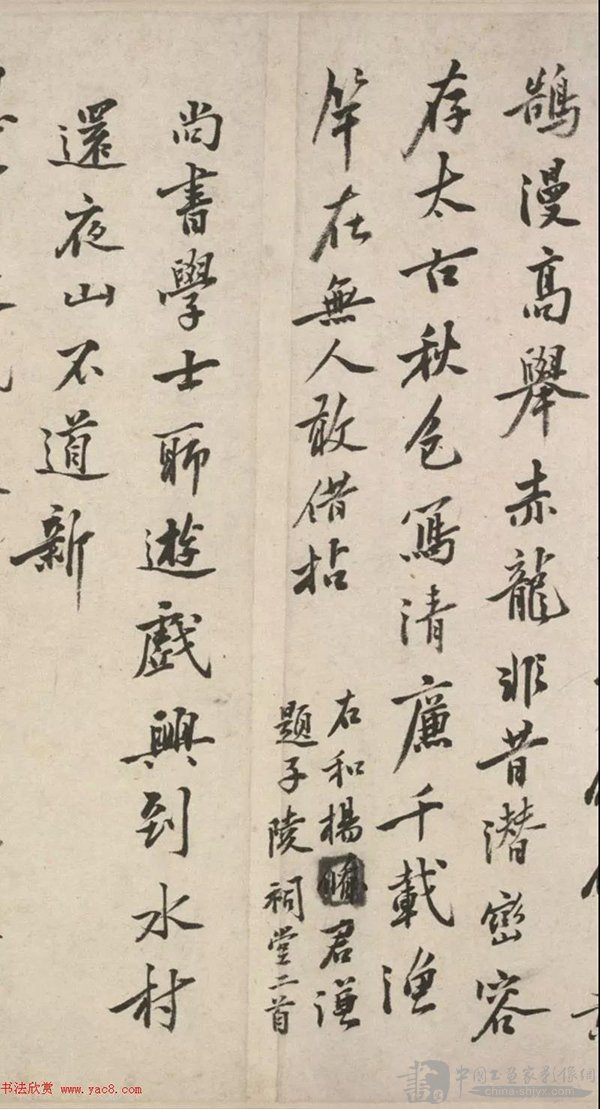 鵠漫高舉赤龍非昔潛巒容
存太古秋色寫清廉千載漁
竿在無人敢借拈
右和楊君謙
題子陵祠堂二首
尚書學士聊遊戲興到水村
還夜山不道新
书法欣赏 www.yac8.com
中国工笔家影像网
www.china-shjyx.com